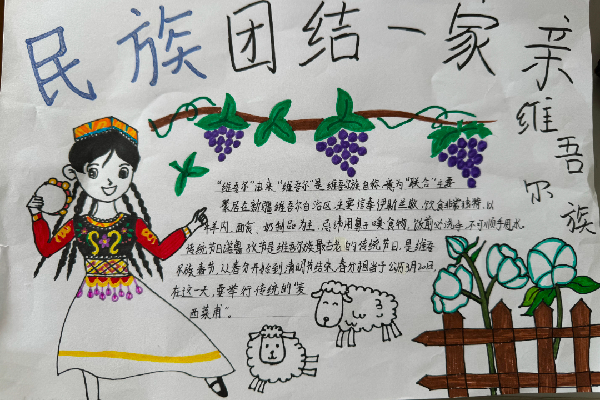 民族团结一家亲
维吾尔族
"维吾尔"由来,"维吾尔"是维吾尔族自称,意为"联合"主要
聚居在新疆维吾尔自治区,主要信奉伊斯兰教,饮食
羊肉、面食、奶制品为主,忌
传统节日诺鲁孜节是维吾尔族最古老的传统节日,是维吾
尔族春节,从春分开始到清明节结束,春分相当于公历3月20日
在这一天,要举行传统的"麦
西莱甫"。